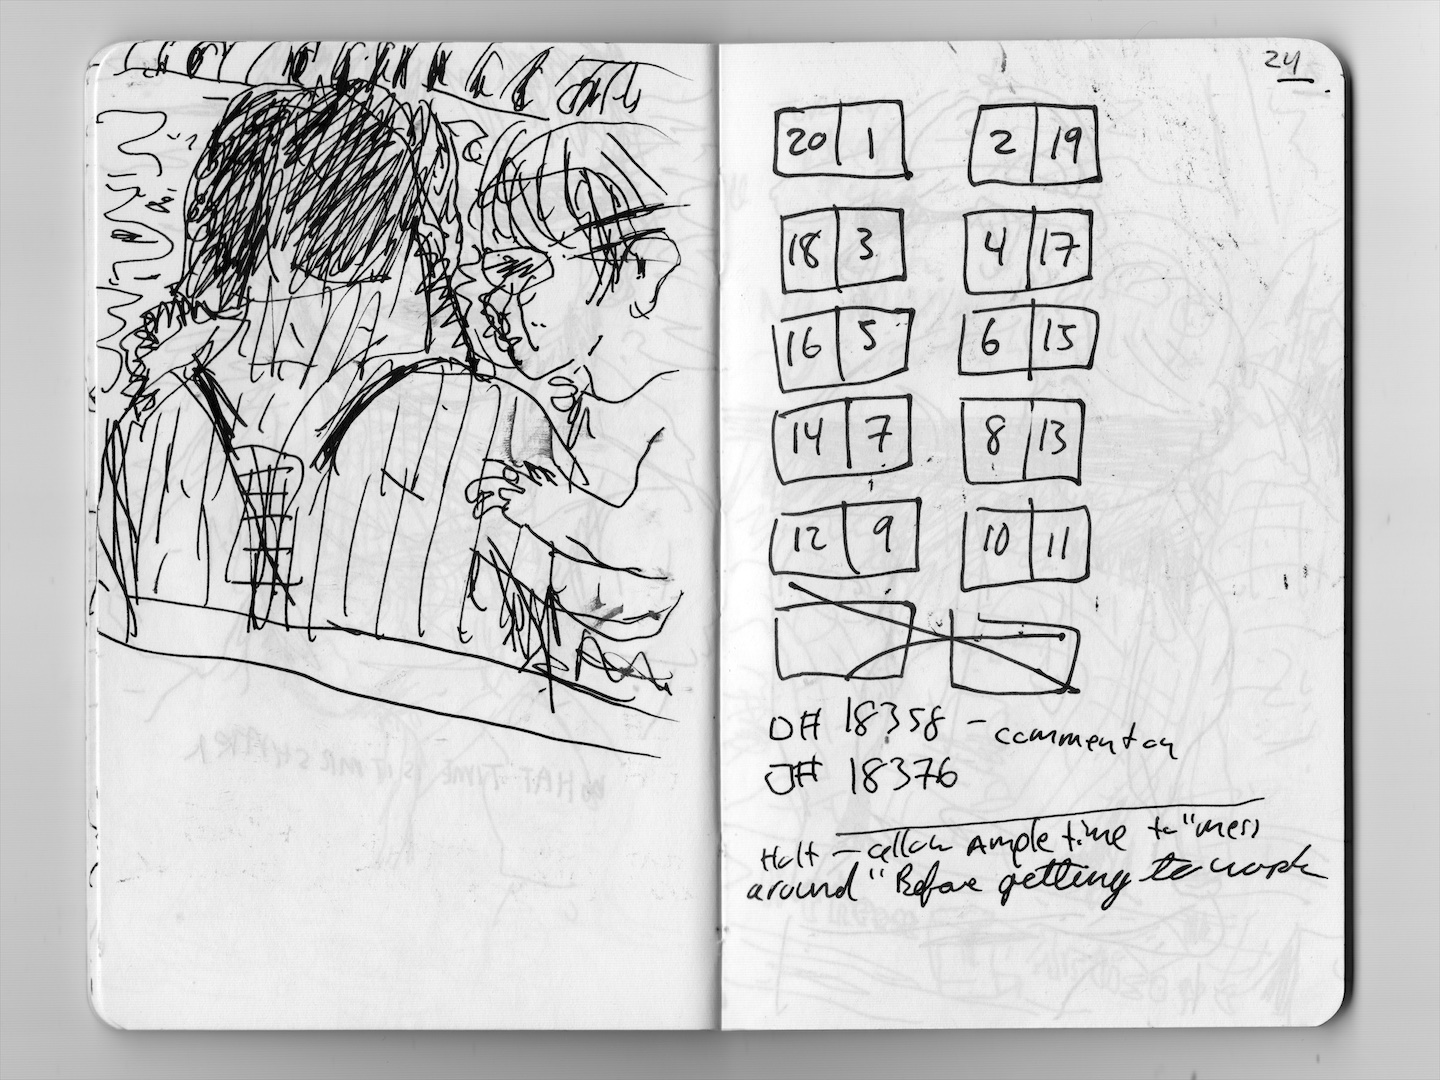 24
20 1 2 19
18 3 4 17
16 5 6 15
14 7 8 13
12 9 10 11
O# 18358 - commentary
O# 18376
Holt - allow Ample time to "mess
around" Before getting to work